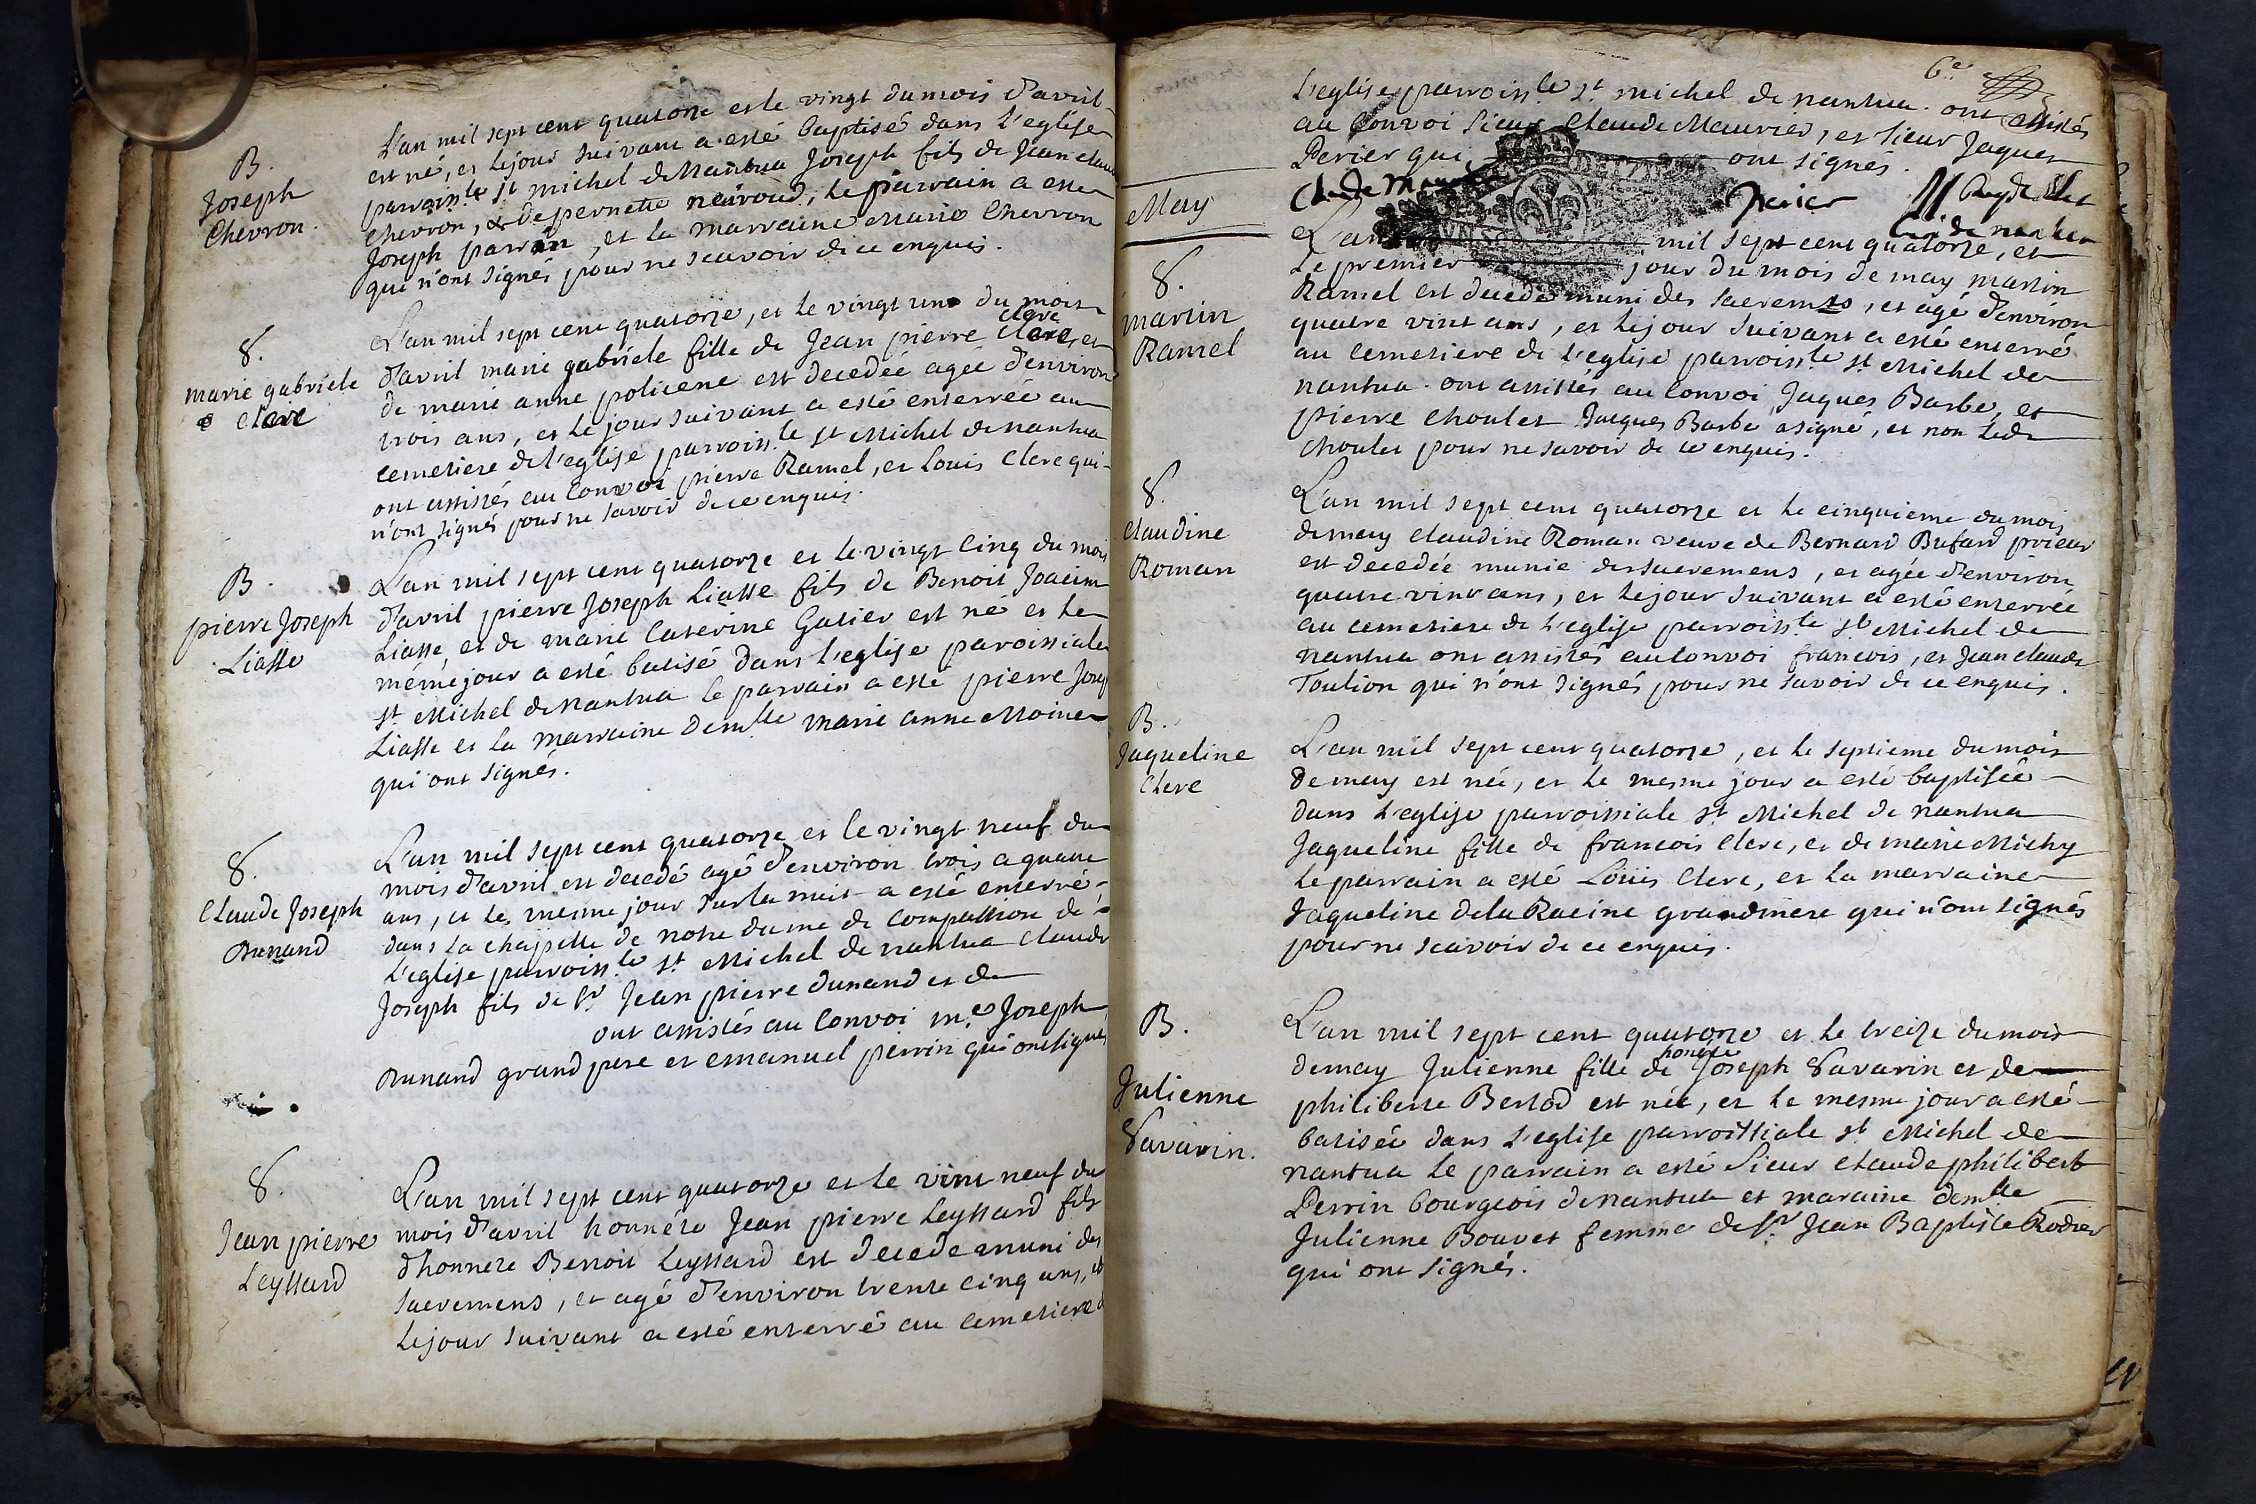 B.
Joseph
Chevron.
L'an mil sept cent quatorze et le vingt du mois d'avril
est né, et le jour suivant a esté baptisé dans l'eglise
parroiss.le st michel de Nantua Joseph fils de Jean claude
chevron, & de pernette neivoud, le parrain a esté
Joseph parrain, et la marraine Marie Chevron
qui n'ont signés pour ne scavoir de ce enquis.
8.
marie gabriele
Clerc
L'an mil sept cent quatorze, et le vingt un du mois
d'avril marie gabriele fille de Jean pierre Clerc clerc, et
de marie anne policene est decedée agée d'environ
trois ans, et le jour suivant a esté enterrée au
cemetiere de l'eglise parroiss.le st Michel de nantua
ont assistés au Convoi pierre Ramel, et Louis Clerc qui
n'ont signés pour ne savoir de ce enquis.
B.
pierre Joseph
Liasse
L'an mil sept cent quatorze et le vingt cinq du mois
d'avril pierre Joseph Liasse fils de Benoit Joacim
Liasse, et de marie Caterine Galier est né et le
même jour a esté batisé dans l'eglise paroissiale
st Michel de Nantua le parrain a esté pierre Josep
Liasse et la marraine dem.lle marie anne Moine
qui ont signés.
8.
Claude Joseph
Dunand
L'an mil sept cent quatorze et le vingt neuf du
mois d'avril est decedé agé d'environ trois a quatre
ans, et le mesme jour sur la nuit a esté enterré
dans la chapelle de notre dame de Compassion de
L'eglise parroiss.le st Michel de nantua Claude
Joseph fils de sr Jean pierre dunand et de
ont assistés au Convoi m.e Joseph
Dunand grand pere et emanuel perrin qui ont signés
8.
Jean pierre
Leyssard
L'an mil sept cent quatorze et le vint neuf du
mois d'avril honnéte Jean pierre Leyssard fils
d'honnete Benoit Leyssard est decede muni des
sacremens, et agé d'environ trente cinq ans, et
le jour suivant a esté enterré au Cemetiere d
6.e
L'eglise parroiss.le st michel de nantua. ont assistés
au Convoi sieur Claude Maurier, et sieur Jaques
Perier qui ont signés.
Clade Mau Perier
May
8.
Martin
Ramel
L'an mil sept cent quatorze, et
Le premier jour du mois de may martin
Ramel est decedé muni des sacremens, et agé d'environ
quatre vint ans, et le jour suivant a esté enterré
au cemetiere de l'eglise parroiss.le st Michel de
nantua. ont assistés au Convoi Jaques Barbe, et
pierre Choulet Jacques Barbe a signé, et non led.
Choulet pour ne savoir de ce enquis.
8.
Claudine
Roman
L'an mil sept cent quatorze et le cinquieme du mois
de may Claudine Roman veuve de Bernard Bufard prieur
est decedée munie des sacremens, et agée d'environ
quatre vint ans, et le jour suivant a esté enterrée
au cemetiere de l'eglise parroiss.le st Michel de
nantua ont assistés au Convoi francois, et Jean claude
Toulion qui n'ont signés pour ne savoir de ce enquis.
B.
Jaqueline
Clerc
L'an mil sept cent quatorze, et le septieme du mois
de may est née, et le mesme jour a esté baptisée
dans l'eglise parroissiale st Michel de nantua
Jaqueline fille de francois Clerc, et de marie Michy
le parrain a esté Loüis Clerc, et la marraine
Jaqueline de la Racine grandmere qui n'ont signés
pour ne scavoir de ce enquis.
B.
Julienne
Savarin.
L'an mil sept cent quatorze et le treize du mois
de may Julienne fille de honete Joseph Savarin et de
philiberte Bertod est née, et le mesme jour a esté
batisée dans l'eglise parroissiale st Michel de
nantua le parrain a esté sieur Claude philibert
Perrin bourgeois de nantua et maraine dem.lle
Julienne Bouvet femme de sr Jean Baptiste Rodier
qui ont signés.